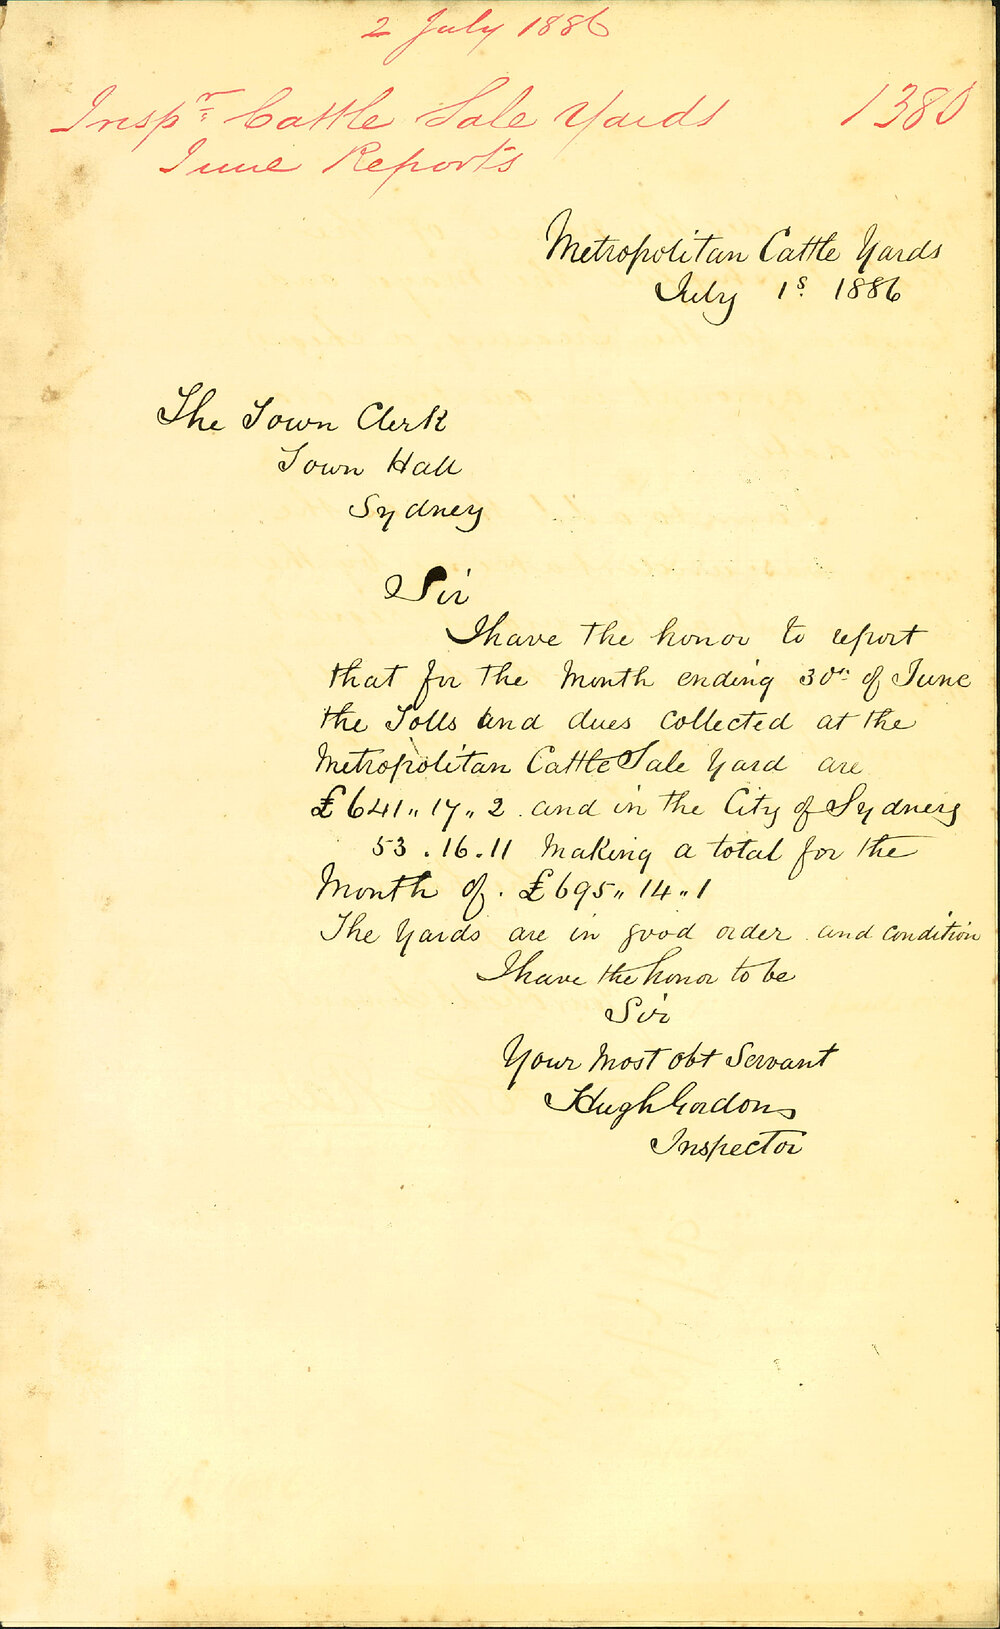 2 July 1886
Inspr Cattle Sale Yards 1380
June Reports
Metropolitan Cattle Yards
July 1s. 1886
The Town Clerk
Town Hall
Sydney
Sir
I have the honor to report
that for the Month ending 30th of June
the Tolls and dues collected at the
Metropolitan Cattle Sale Yard are
£641" 17" 2 and in the City of Sydney
53 . 16 . 11 Making a total for the
Month of . £695" 14" 1
The Yards are in good order and condition
I have the honor to be
Sir
Your Most obt Servant
Hugh Gordon
Inspector